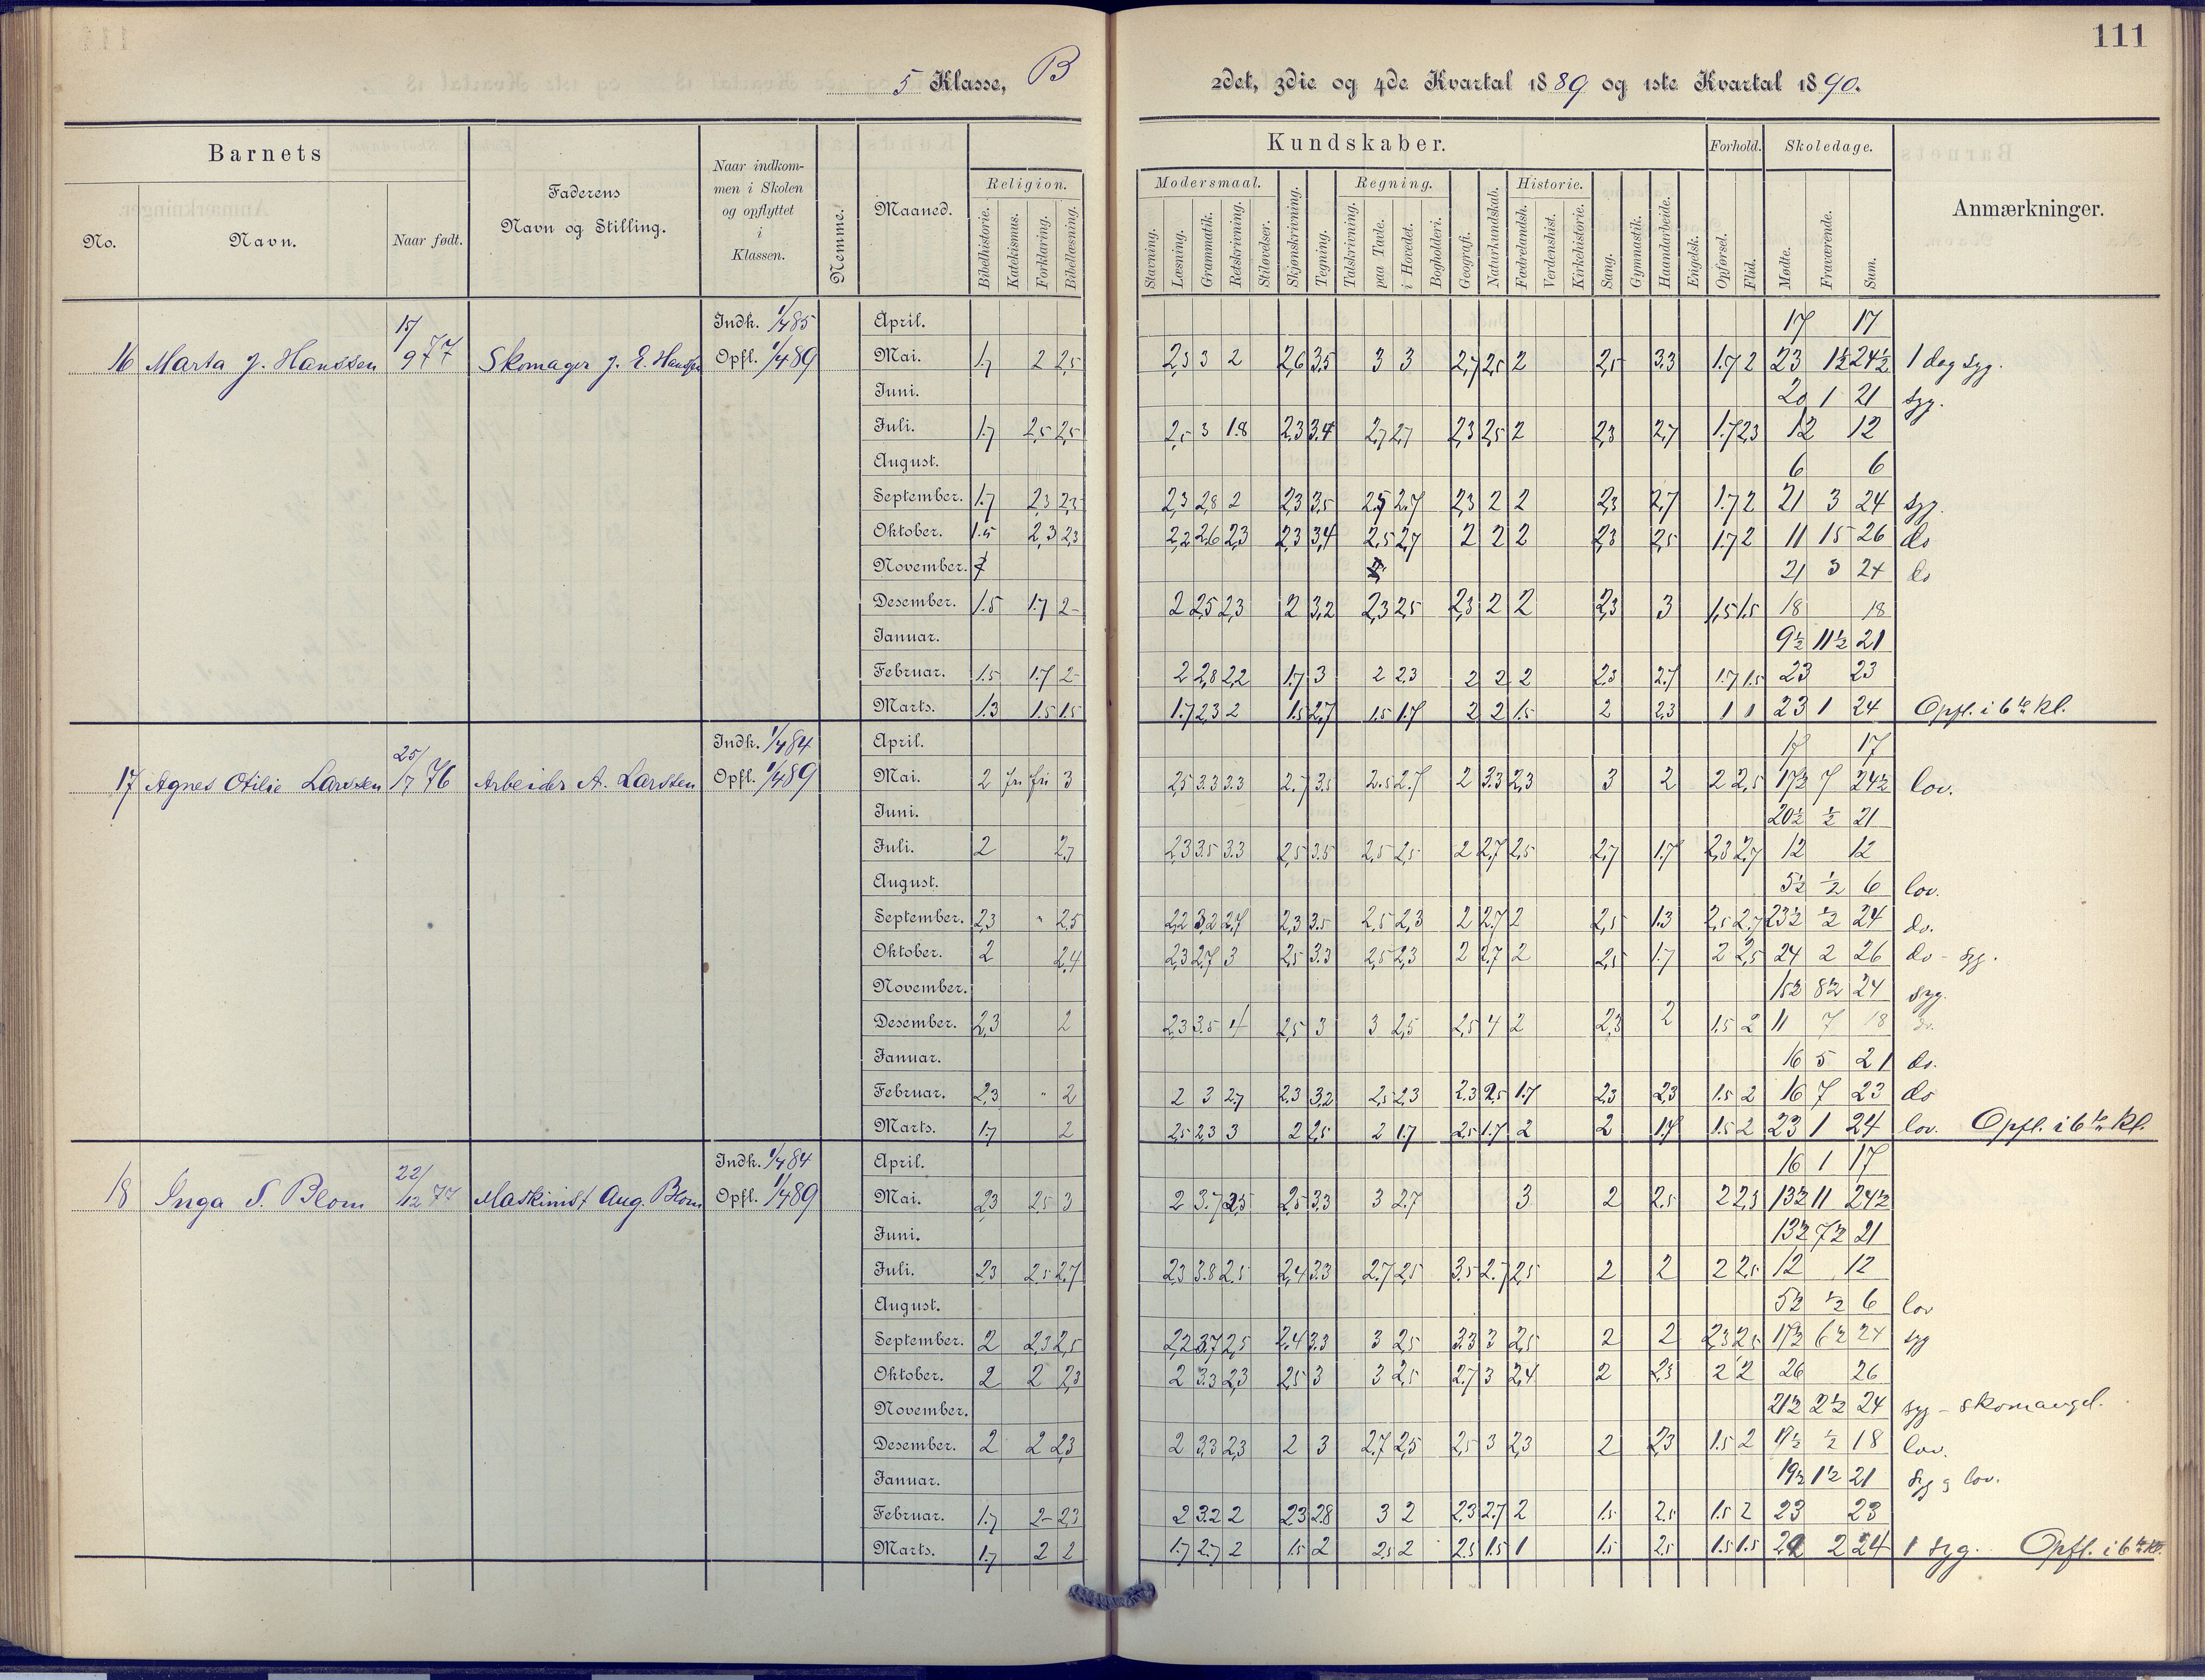 111
5 Klasse, B
2det, 3die og 4de Kvartal 1889 og 1ste Kvartal 1890.
Barnets
No.
Navn.
Naar født.
Faderens
Navn og Stilling.
Naar indkom-
men i Skolen
og opflyttet
i
Klassen.
Nemme.
Maaned.
Religion.
Bibelhistorie.
Katekismus.
Forklaring.
Bibellæsning.
Kundskaber.
Modersmaal.
Stavning.
Læsning.
Grammatik.
Retskrivning.
Stiløvelser.
Skjønskrivning.
Tegning.
Regning.
Talskrivning.
paa Tavle.
i Hovedet.
Bogholderi.
Geografi.
Naturkundskab.
Historie.
Fædrelandsh.
Verdenshist.
Kirkehistorie.
Sang.
Gymnastik.
Haandarbeide.
Engelsk.
Forhold.
Opførsel.
Flid.
Skoledage.
Mødte.
Fraværende.
Sum.
Anmærkninger.
16 Marta J. Hanssen 15/9 77 Skomager J. E. Hanssen Indk. 1/4 85 Opfl. 1/4 89
April. 17 17
Mai. 1.7 2 2,5 2,5 3 2 2,6 3,5 3 3 2,7 2,5 2 2,5 3.3 1.7 2 23 1½ 24½ 1 dag syg.
Juni. 20 1 21 syg.
Juli. 1.7 2,5 2,5 2,5 3 1.8 2.3 3.4 2,7 2,7 2,3 2,5 2 2,3 2,7 1.7 2,3 12 12
August. 6 6
September. 1.7 2,3 2,3 2,3 2,8 2 2,3 3,5 2,5 2,7 2,3 2 2 2,3 2,7 1.7 2 21 3 24 syg.
Oktober. 1.5 2,3 2,3 2,2 2,6 2,3 2,3 3,4 2,5 2,7 2 2 2 2,3 2,5 1.7 2 11 15 26 do
November. 21 3 24 do
Desember. 1.5 1.7 2- 2 2,5 2,3 2 3,2 2,3 2,5 2,3 2 2 2,3 3 1,5 1.5 18 18
Januar. 9½ 11½ 21
Februar. 1.5 1.7 2- 2 2,8 2,2 1.7 3 2 2,3 2 2 2 2,3 2.7 1.7 1.5 23 23
Marts. 1.3 1.5 1.5 1.7 2,3 2 1.5 2,7 1.5 1.7 2 2 1.5 2 2,3 1 1 23 1 24 Opfl. i 6te kl.
17 Agnes Otilie Larssen 76 Arbeider A. Larssen Indk. 1/4 84 Opfl. 1/4 89
April. 17 17
Mai. 2 fri fri 3 2,5 3.3 3.3 2.7 3.5 2.5 2.7 2 3.3 2,3 3 2 2 2,5 17½ 7 24½ lov.
Juni. 20½ ½ 21
Juli. 2 2,7 2,3 3.5 3.3 2,5 3.5 2,5 2,5 2 2,7 2,5 2,7 1.7 2,3 2,7 12 12
August. 5½ ½ 6 lov.
September. 2,3 " 2,5 2,2 3,2 2,7 2,3 3.5 2,5 2,3 2 2.7 2 2,5 1.3 2,5 2.7 23½ ½ 24 do.
Oktober. 2 2,4 2,3 2.7 3 2,5 3.3 2,5 2,3 2 2.7 2 2,5 1.7 2 2,5 24 2 26 do - syg.
November. 15½ 8½ 24 syg.
Desember. 2,3 2 2,3 3.5 4 2,5 3 3 2,5 2,5 4 2 2,3 2 1.5 2 11 7 18 do.
Januar. 16 5 21 do.
Februar. 2,3 " 2 2 3 2,7 2,3 3,2 2,5 2,3 2.3 2,5 1.7 2,3 2,3 1.5 2 16 7 23 do
Marts. 1.7 2 2,5 2,3 3 2 2,5 2 1.7 2,5 1.7 2 2 1.7 1.5 2 23 1 24 lov. Opfl. i 6te kl.
18 Inga S. Blom 22/12 77 Maskinist Aug. Blom Indk. 1/4 84 Opfl. 1/4 89
April. 16 1 17
Mai. 2,3 2,5 3 2 3.7 2,5 2,5 3.3 3 2.7 3 2 2.5 2 2,5 13½ 11 24½
Juni. 13½ 7½ 21
Juli. 2,3 2,5 2,7 2,3 3.8 2.5 2,4 3.3 2.7 2,5 3.5 2.7 2,5 2 2 2 2,5 12 12
August. 5½ ½ 6 lov
September. 2 2,3 2,5 2,2 3.7 2,5 2,4 3.3 3 2,5 3.3 3 2,5 2 2 2,3 2,5 17½ 6½ 24 syg
Oktober. 2 2 2,3 2 3.3 2,3 2,5 3 3 2,5 2.7 3 2,4 2 2,3 2 2 26 26
November. 21½ 2½ 24 syg - skomangel.
Desember. 2 2 2,3 2 3.3 2,3 2 3 2.7 2,5 2,5 3 2,3 2 2,3 1.5 2 17½ ½ 18 lov.
Januar. 19½ 1½ 21 syg og lov.
Februar. 1.7 2- 2,3 2 3.2 2 2,3 2,8 3 2 2.3 2.7 2 1.5 2.5 1.5 2 23 23
Marts. 1.7 2 2 1.7 2.7 2 1.5 2 2,5 2 2.5 1.5 1 1.5 2.5 1.5 1.5 22 2 24 1 syg. Opfl. i 6te kl.